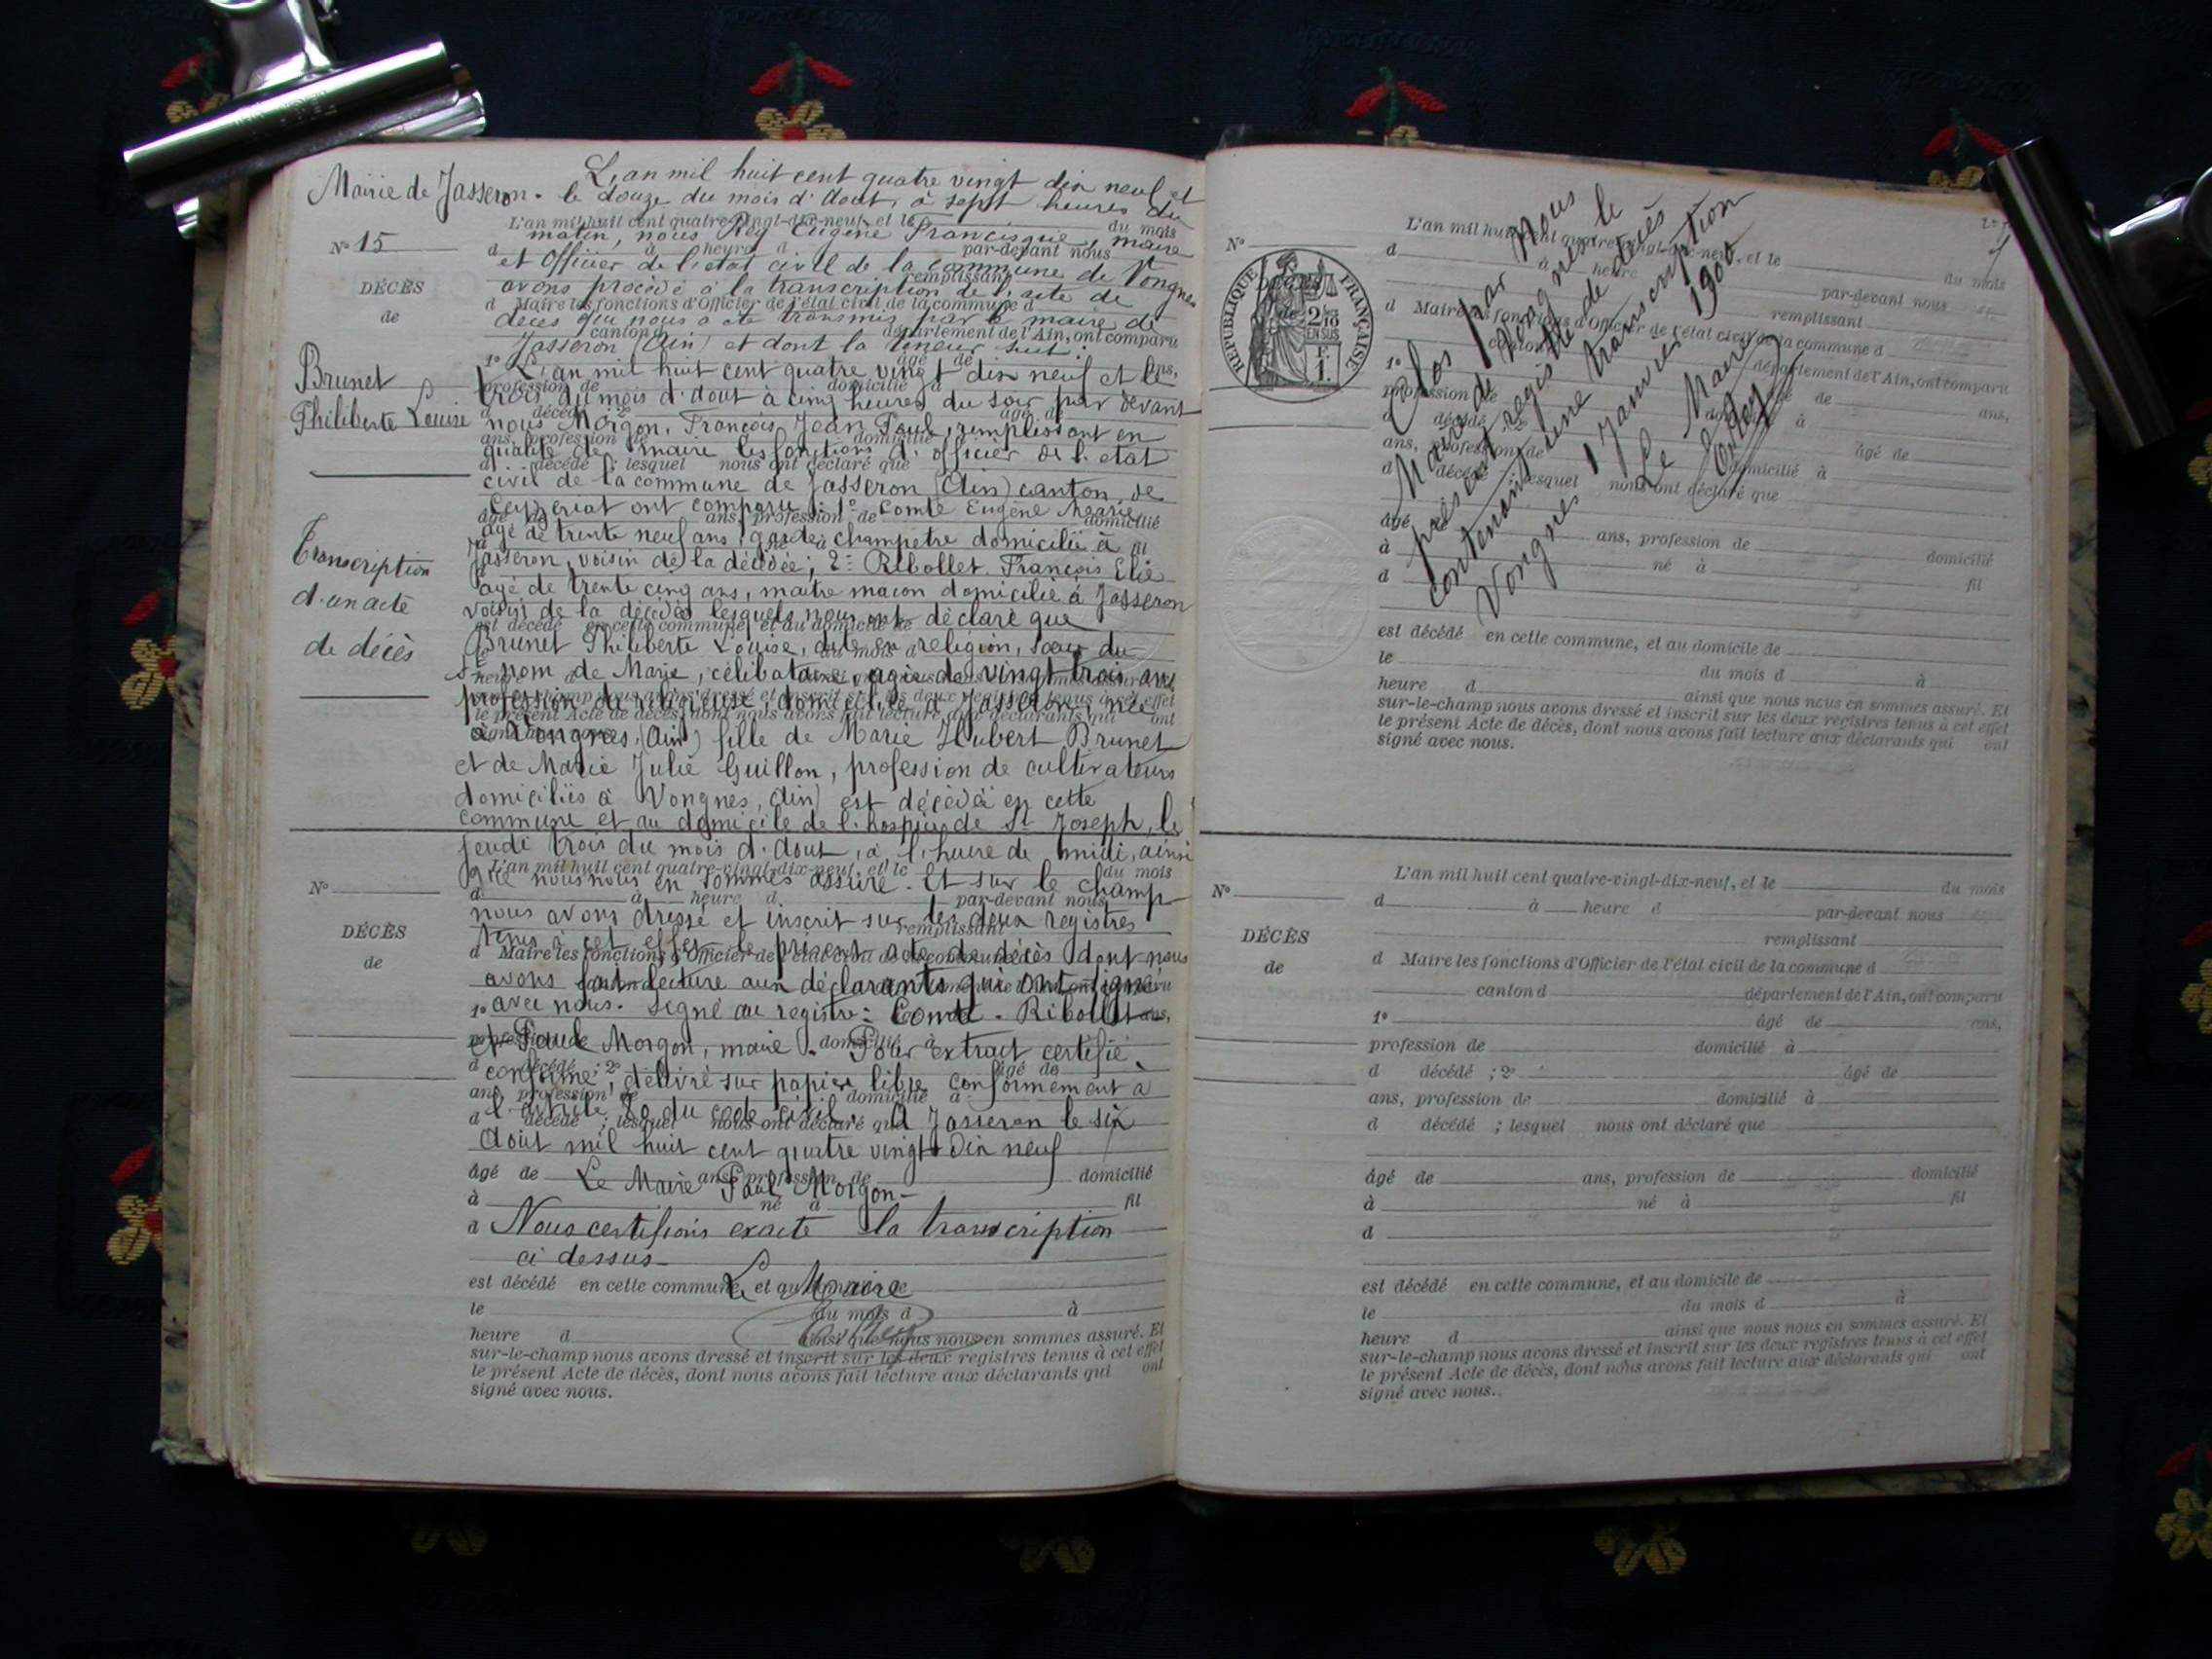 Mairie de Jasseron.
N° 15
DÉCÈS
de
Brunet
Philiberte Louise
Transcription
d'un acte
de décès
L'an mil huit cent quatre vingt dix neuf et
le douze du mois d'Aout, à sept heures du
matin, nous Rey Eugène Francisque, maire
et Officier de l'état civil de la commune de Vongnes
avons procédé à la transcription de l'acte de
décès qui nous a été transmis par le maire de
Jasseron (Ain) et dont la teneur suit :
L'an mil huit cent quatre vingt dix neuf et le
trois du mois d'Aout à cinq heures du soir par devant
nous Morgon, François Jean Paul, remplissant en
qualité de maire les fonctions d'officier de l'état
civil de la commune de Jasseron (Ain) canton de
Ceyzeriat ont comparu : 1° Comte Eugène Marie
âgé de trente neuf ans, garde champetre domicilié à
Jasseron, voisin de la décédée; 2° Ribollet François Elie
agé de trente cinq ans, maitre maçon domicilié à Jasseron
voisin de la décédée lesquels nous ont déclaré que
Brunet Philiberte Louise, dite en religion, sœur du
St nom de Marie, célibataire, agée de vingt trois ans
profession de religieuse, domiciliée à Jasseron, née
à Vongnes, (Ain) fille de Marie Hubert Brunet
et de Marie Julie Guillon, profession de cultivateurs
domiciliés à Vongnes, (Ain) est décédée en cette
commune et au domicile de l'hospice de St Joseph, le
jeudi trois du mois d'Aout, à l'heure de midi, ainsi
que nous nous en sommes assuré. Et sur le champ
nous avons dressé et inscrit sur les deux registres
tenus à cet effet le présent acte de décès dont nous
avons fait lecture aux déclarants qui ont signé
avec nous. Signé au registre : Comte - Ribollet
et Paul Morgon, maire. Pour extrait certifié
conforme, délivré sur papier libre conformement à
l'article 80 du code civil. A Jasseron le six
Aout mil huit cent quatre vingt dix neuf
Le Maire Paul Morgon -
Nous certifions exacte la transcription
ci dessus -
Le Maire
N°
DÉCÈS
de
est décédé en cette commune, et au domicile de
le du mois d à
heure d ainsi que nous nous en sommes assuré. Et
sur-le-champ nous avons dressé et inscrit sur les deux registres tenus à cet effet
le présent Acte de décès, dont nous avons fait lecture aux déclarants qui ont
signé avec nous.
Clos par Nous
Maire de Vongnes le
présent registre de décès
contenant une transcription
Vongnes 1 Janvier 1900
Le Maire
N°
RÉPUBLIQUE FRANÇAISE
2/10
EN SUS
F.
1.
L'an mil huit cent quatre-vingt-dix-neuf, et le du mois
d à heure d par-devant nous
remplissant
d Maire les fonctions d'Officier de l'état civil de la commune d
canton d département de l'Ain, ont comparu
1° âgé de ans,
profession de domicilié à
d décédé ; 2° âgé de
ans, profession de domicilié à
d décédé ; lesquel nous ont déclaré que
âgé de ans, profession de domicilié
à né à fil
d
est décédé en cette commune, et au domicile de
le du mois d à
heure d ainsi que nous nous en sommes assuré. Et
sur-le-champ nous avons dressé et inscrit sur les deux registres tenus à cet effet
le présent Acte de décès, dont nous avons fait lecture aux déclarants qui ont
signé avec nous.
N°
DÉCÈS
de
L'an mil huit cent quatre-vingt-dix-neuf, et le du mois
d à heure d par-devant nous
remplissant
d Maire les fonctions d'Officier de l'état civil de la commune d
canton d département de l'Ain, ont comparu
1° âgé de ans,
profession de domicilié à
d décédé ; 2° âgé de
ans, profession de domicilié à
d décédé ; lesquel nous ont déclaré que
âgé de ans, profession de domicilié
à né à fil
d
est décédé en cette commune, et au domicile de
le du mois d à
heure d ainsi que nous nous en sommes assuré. Et
sur-le-champ nous avons dressé et inscrit sur les deux registres tenus à cet effet
le présent Acte de décès, dont nous avons fait lecture aux déclarants qui ont
signé avec nous.